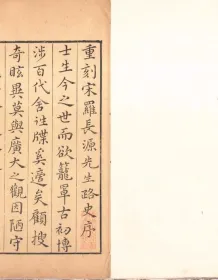 重刻宋羅長源先生路史序
士生今之世而欲籠罩古初博
涉百代舍諜奚適矣顧搜
奇眩異莫與廣大之觀因陋守